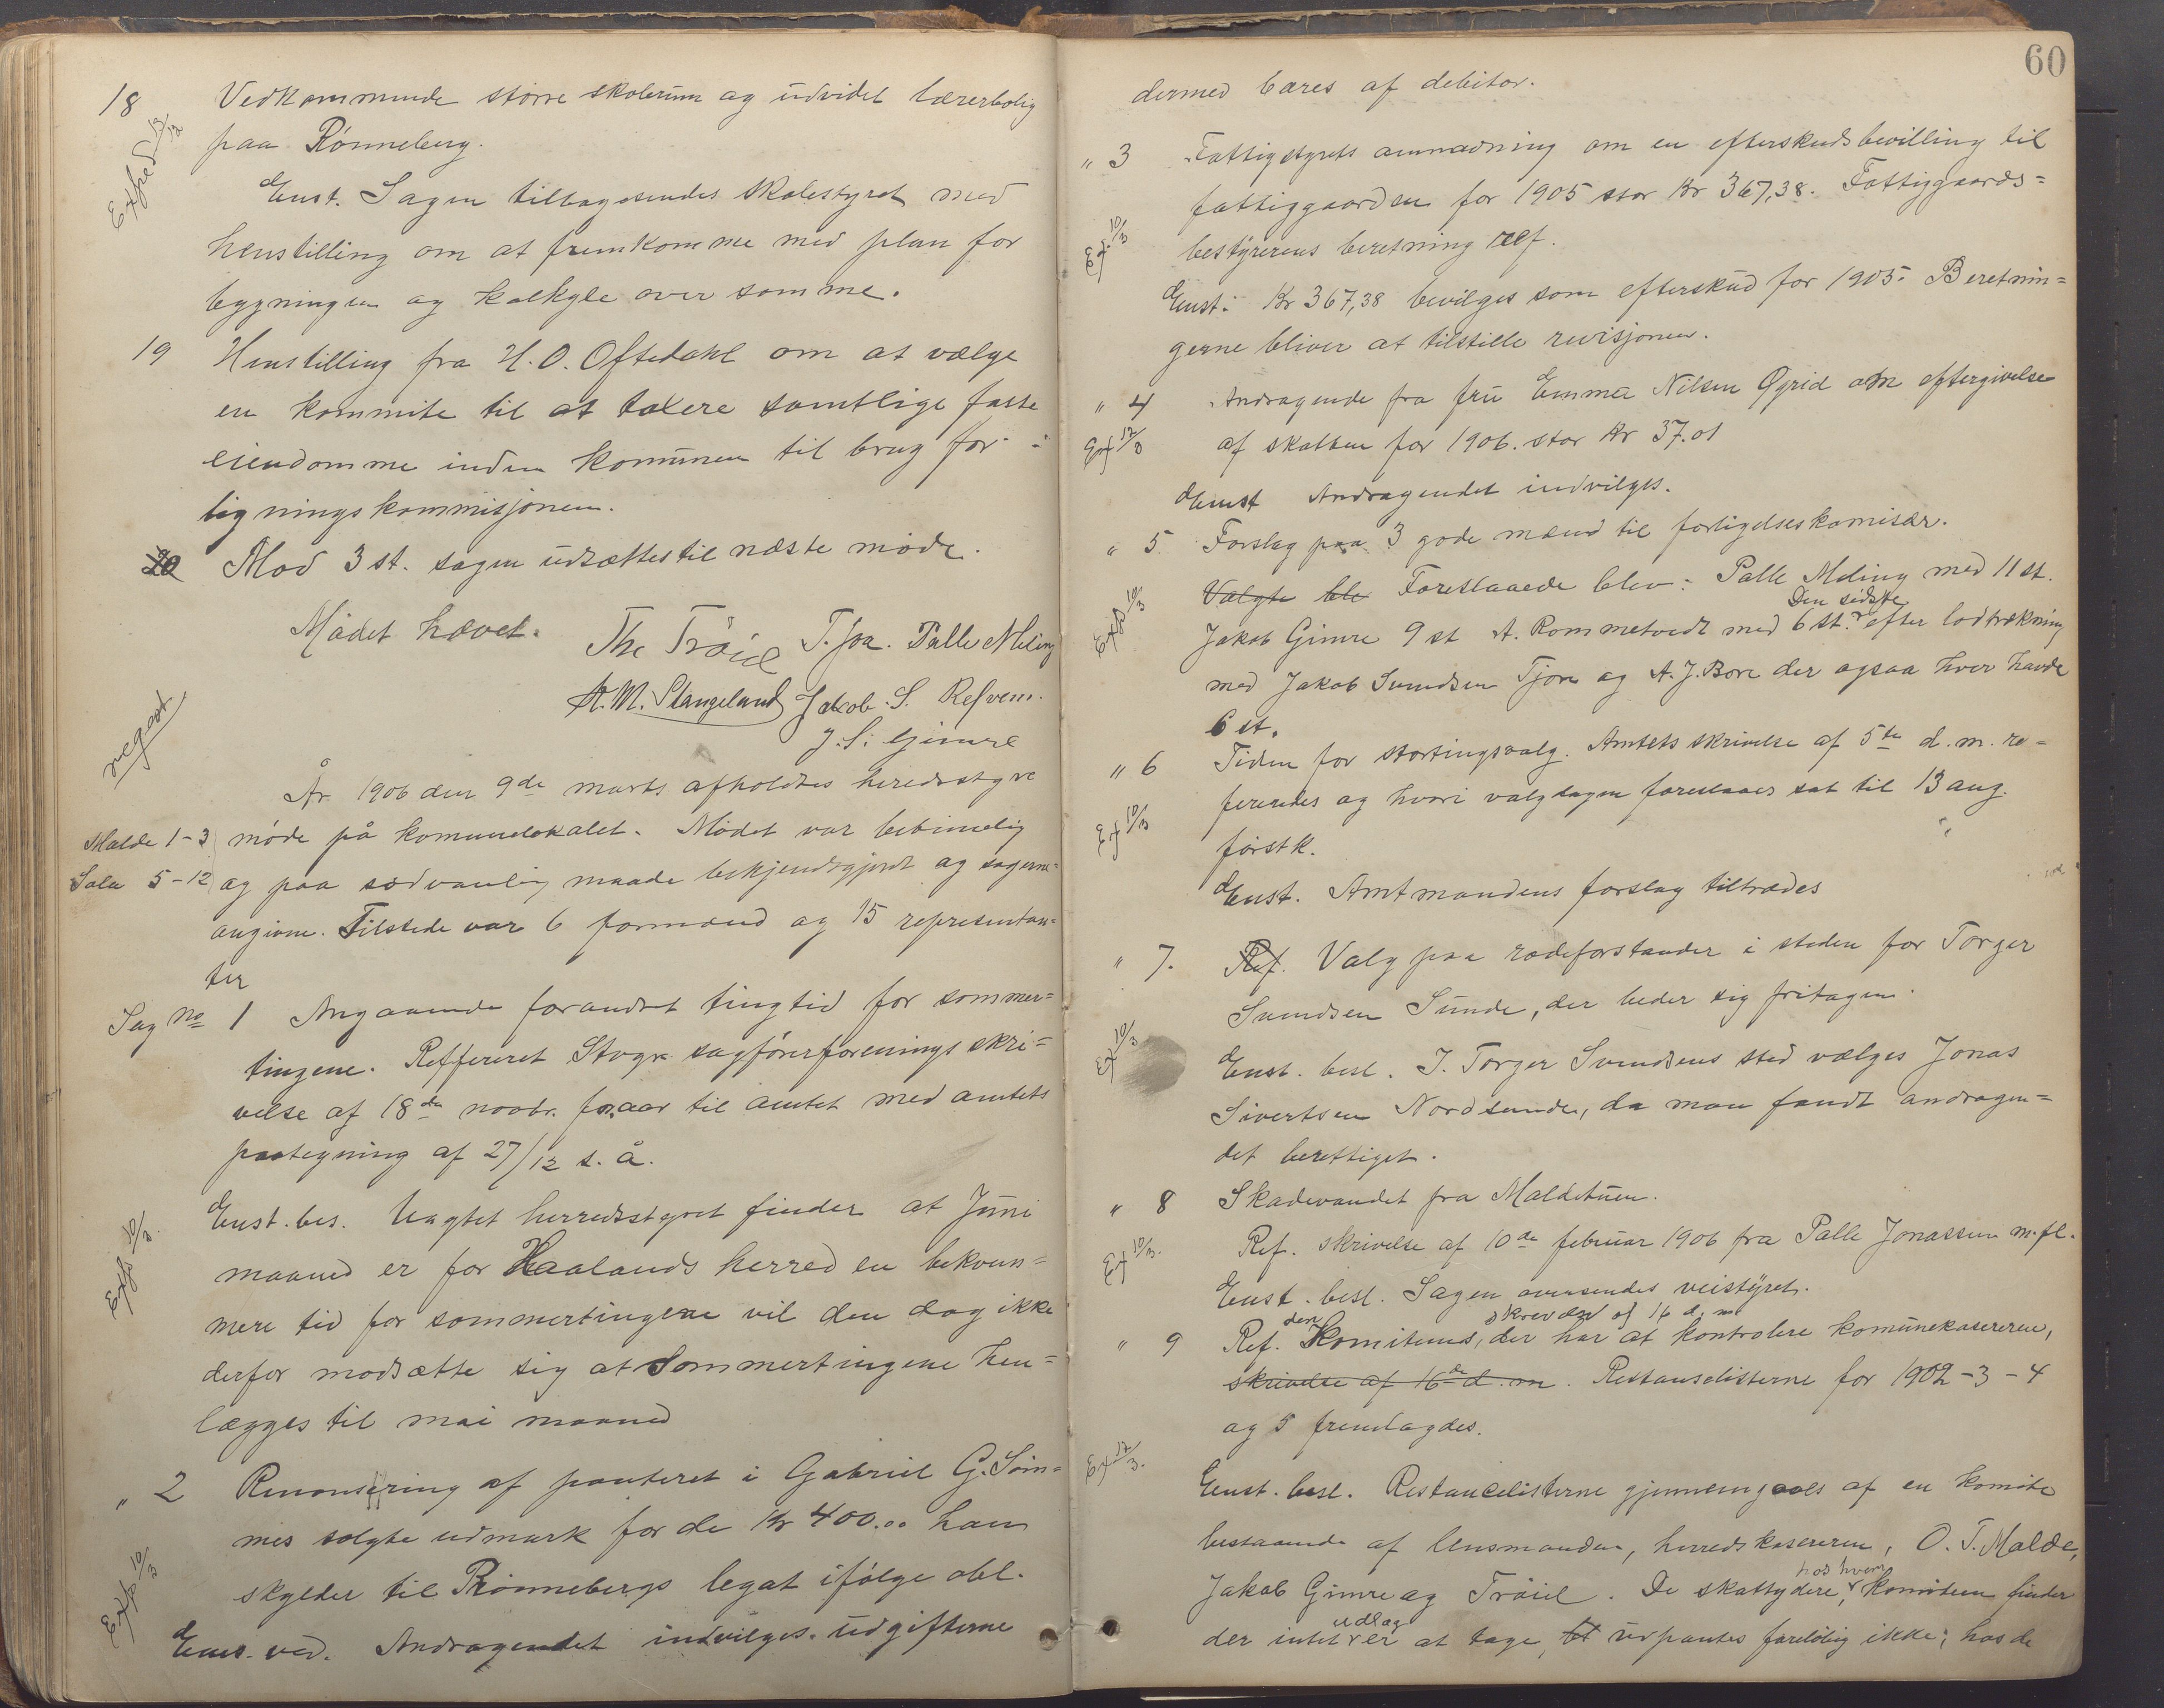 18 Vedkommende større skolerum og udvidet lærerbolig
Exfred 12/12
paa Rønneberg.
Enst. Sagen tilbagesendes skolestyret med
henstilling om at fremkomme med plan for
bygningen og kalkyle over samme.
19 Henstilling fra H. O. Oftedahl om at vælge
en kommite til at taxere samtlige faste
eiendomme inden kommunen til brug for
ligningskommisjonen.
20 Mod 3 st. sagen udsættes til næste møde.
Mødet hævet.
Th Trøiel T. Joa. Palle Meling
A. M. Stangeland Jakob. S. Refvem.
J. S. Gimre
regest
År 1906 den 9de marts afholdtes heredsstyre
Malde 1-3 møde på komunelokalet. Mødet var betimelig
Sola 5-12 og paa sedvanlig maade bekjendtgjort og sagerne
angivne. Tilstede var 6 formænd og 15 representan=
ter
Sag No 1 Angaaende forandret tingtid for sommer=
tingene. Reffereret Stvgr. sagførerforenings skri=
velse af 18de novbr. f. aar til amtet med amtets
paategning af 27/12 s. å.
Enst. bes. Uagtet herredsstyret finder at Juni
Exp 10/3.
maaned er for Haalands herred en bekvem=
mere tid for sommertingene vil den dog ikke
derfor modsætte sig at Sommertingene hen=
lægges til mai maaned
" 2 Renonsering af panteret i Gabriel G. Søm=
mes solgte udmark for de Kr 400.00 han
Exp 10/3
skylder til Rønnebergs legat ifølge obl.
Enst. ved. Andragendet indvilges. Udgifterne
60
dermed bæres af debitor.
" 3 Fattigstyrets anmodning om en efterskudsbevilling til
fattiggaarden for 1905 stor Kr 367,38. Fattiggaards=
Ex. 10/3
bestyrerens beretning ref.
Enst: Kr 367,38 bevilges som efterskud for 1905. Beretnin=
gerne bliver at tilstille revisjonen.
" 4 Andragende fra fru Emma Nilsen Øgrid om eftergivelse
Exf 12/3
af skatten for 1906. stor Kr 37.01
Enst Andragendet indvilges.
" 5 Forslag paa 3 gode mænd til forligelseskomisær.
Valgte ble Foreslaaede blev: Palle Meling med 11 st.
Exp 10/3
Den sidste
Jakob Gimre 9 st A. Rommetvedt med 6 st. efter lodtrækning
med Jakob Svendsen Tjora og A. J. Bore der ogsaa hver havde
6 st.
" 6 Tiden for stortingsvalg. Amtets skrivelse af 5te d. m. re=
fereredes og hvori valgdagen foreslaaes sat til 13 aug.
Exf 10/3
førstk.
Enst. Amtmandens forslag tiltrædes
" 7. Ref. Valg paa rodeforstander i steden for Torger
Svendsen Sunde, der beder sig fritagen.
Ex 10/3
Enst. besl. I. Torger Svendsens sted vælges Jonas
Sivertsen Nordsunde, da man fandt andragen=
det berettiget.
" 8 Skadevandet fra Maldetuen.
Ref. skrivelse af 10de februar 1906 fra Palle Jonassen m. fl.
Exf 10/3.
Enst. besl. Sagen oversendes veistyret.
den skrivelse af 16 d. m.
" 9 Ref. Komiteens, der har at kontrolere komunekasereren,
skrivelse af 16de d. m. Restanselisterne for 1902-3-4
og 5 fremlagdes.
Exf 12/3.
Enst. besl. Restancelisterne gjennemgaaes af en komite
bestaaende af lensmanden, herredskasereren, O. T. Malde,
hos hvem
Jakob Gimre og Trøiel. De skattydere, komiteen finder
udlæg
der intet er at tage, udpantes foreløbig ikke; hos de